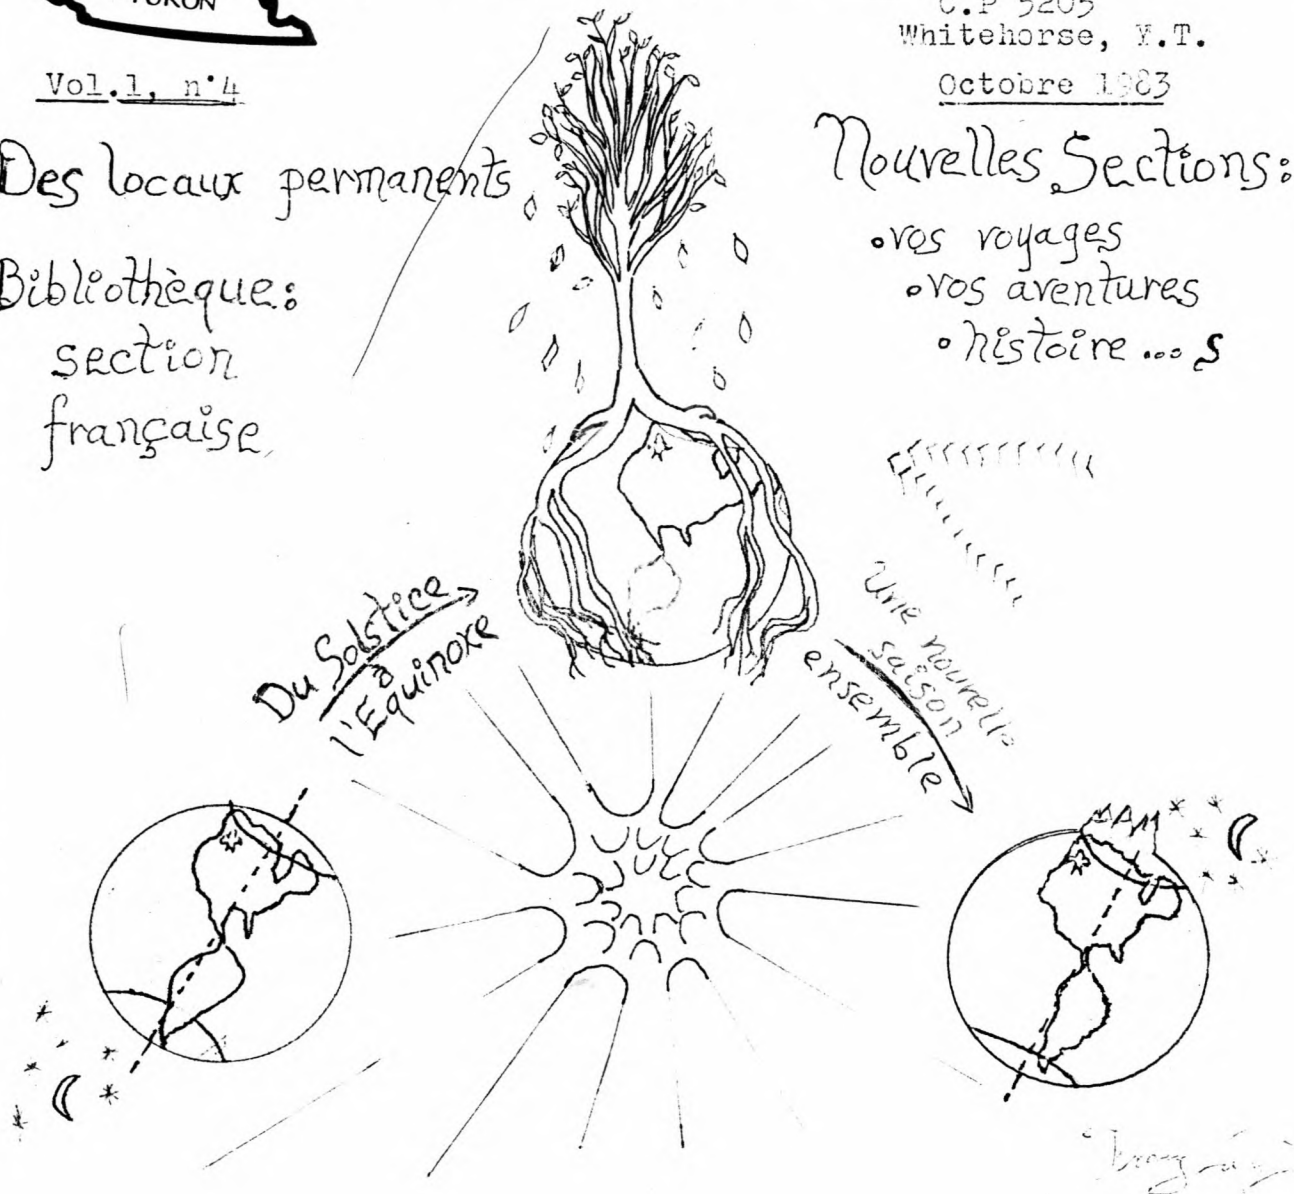 YUKON
C.P 5205
Whitehorse, Y.T.
Vol.1, n°4
Octobre 1983
Des locaux permanents
Bibliothèque:
section
française
Nouvelles Sections:
•vos voyages
•vos aventures
•histoire...s
Du Solstice
à
l'Equinoxe
Une nouvelle
saison
ensemble